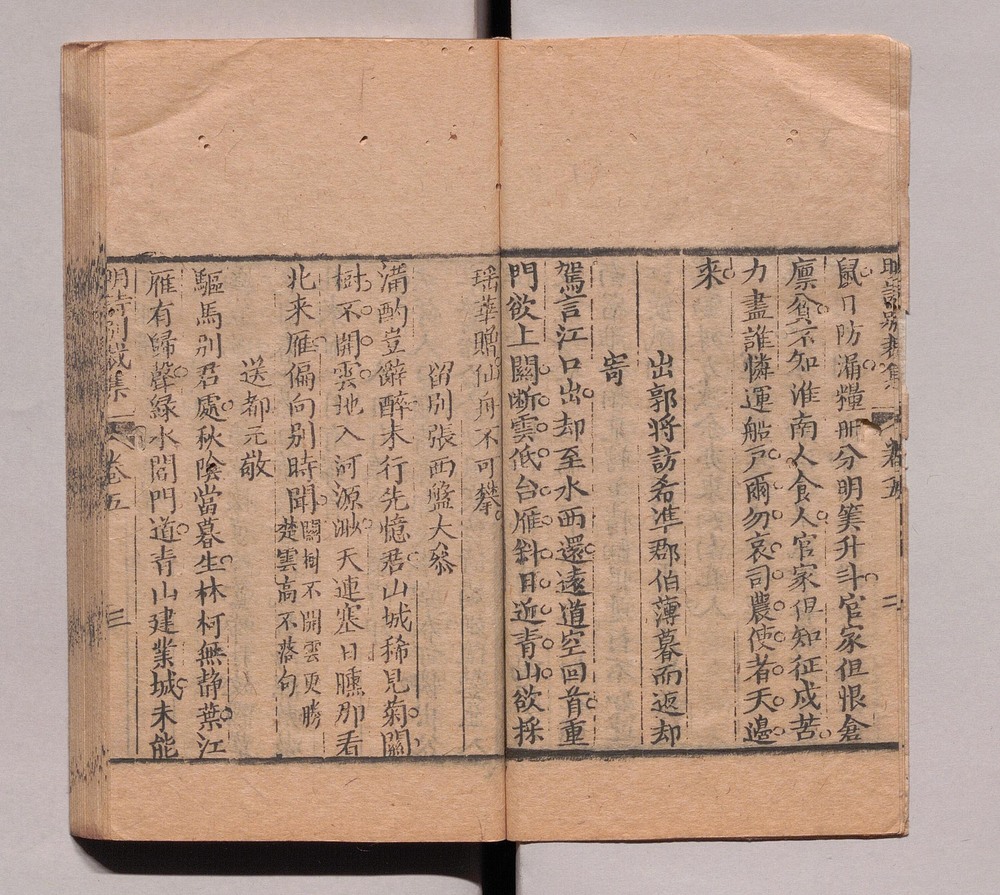 明詩別裁集 卷五 二
鼠日防涌糧册分明筭升斗官家但恨倉
廩貧不知淮南人食人官家但知征戍苦
力盡誰憐運船戸爾勿哀司農使者天邊
來
出郭將訪希準郡伯薄暮而返却
寄
駕言江口出却至水西還遠道空回首重
門欲上關断雲低台雁斜日近青山欲採
瑶華贈仙舟不可攀
留別張西盤大叅
滿酌豈辭醉未行先憶君山城稀見菊關
樹不開雲地入河源渺天連塞日曛那看
北来雁偏向别時聞關樹不開雲更勝楚雲高不落句
送都元敬
驅馬別君處秋陰當暮生林柯無静葉江
雁有歸聲緑水閶門道青山建業城未能
明詩別裁集 卷五 三